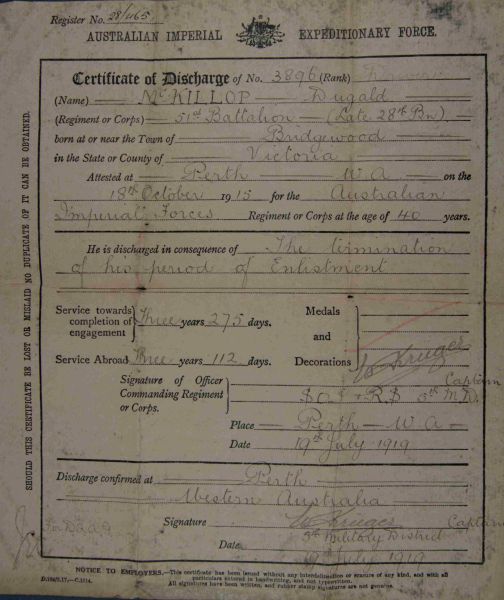 Register No. 28/465
AUSTRALIAN IMPERIAL EXPEDITIONARY FORCE.
Certificate of Discharge of No. 3896 (Rank)
(Name) McKILLOP Dugald
(Regiment or Corps) 51st Battalion (Late 28th Bn).
born at or near the Town of Bridgewood
in the State or County of Victoria
Attested at Perth W.A on the
18th October 1915 for the Australian
Imperial Forces Regiment or Corps at the age of 40 years.
He is discharged in consequence of The termination
of his period of Enlistment
Service towards completion of engagement } Three years 275 days.
Service Abroad Three years 112 days.
Medals and Decorations
Signature of Officer Commanding Regiment or Corps. } W Kruger Captain
5th M.D.
Place Perth - W A -
Date 19th July 1919
Discharge confirmed at Perth
Western Australia
Signature W Kruger Captain
5th Military District
Date 19th July 1919
NOTICE TO EMPLOYERS.—This certificate has been issued without any interlineation or erasure of any kind, and with all
particulars entered in handwriting, and not typewritten.
All signatures have been written, and rubber stamp signatures are not genuine.
SHOULD THIS CERTIFICATE BE LOST OR MISLAID NO DUPLICATE OF IT CAN BE OBTAINED.